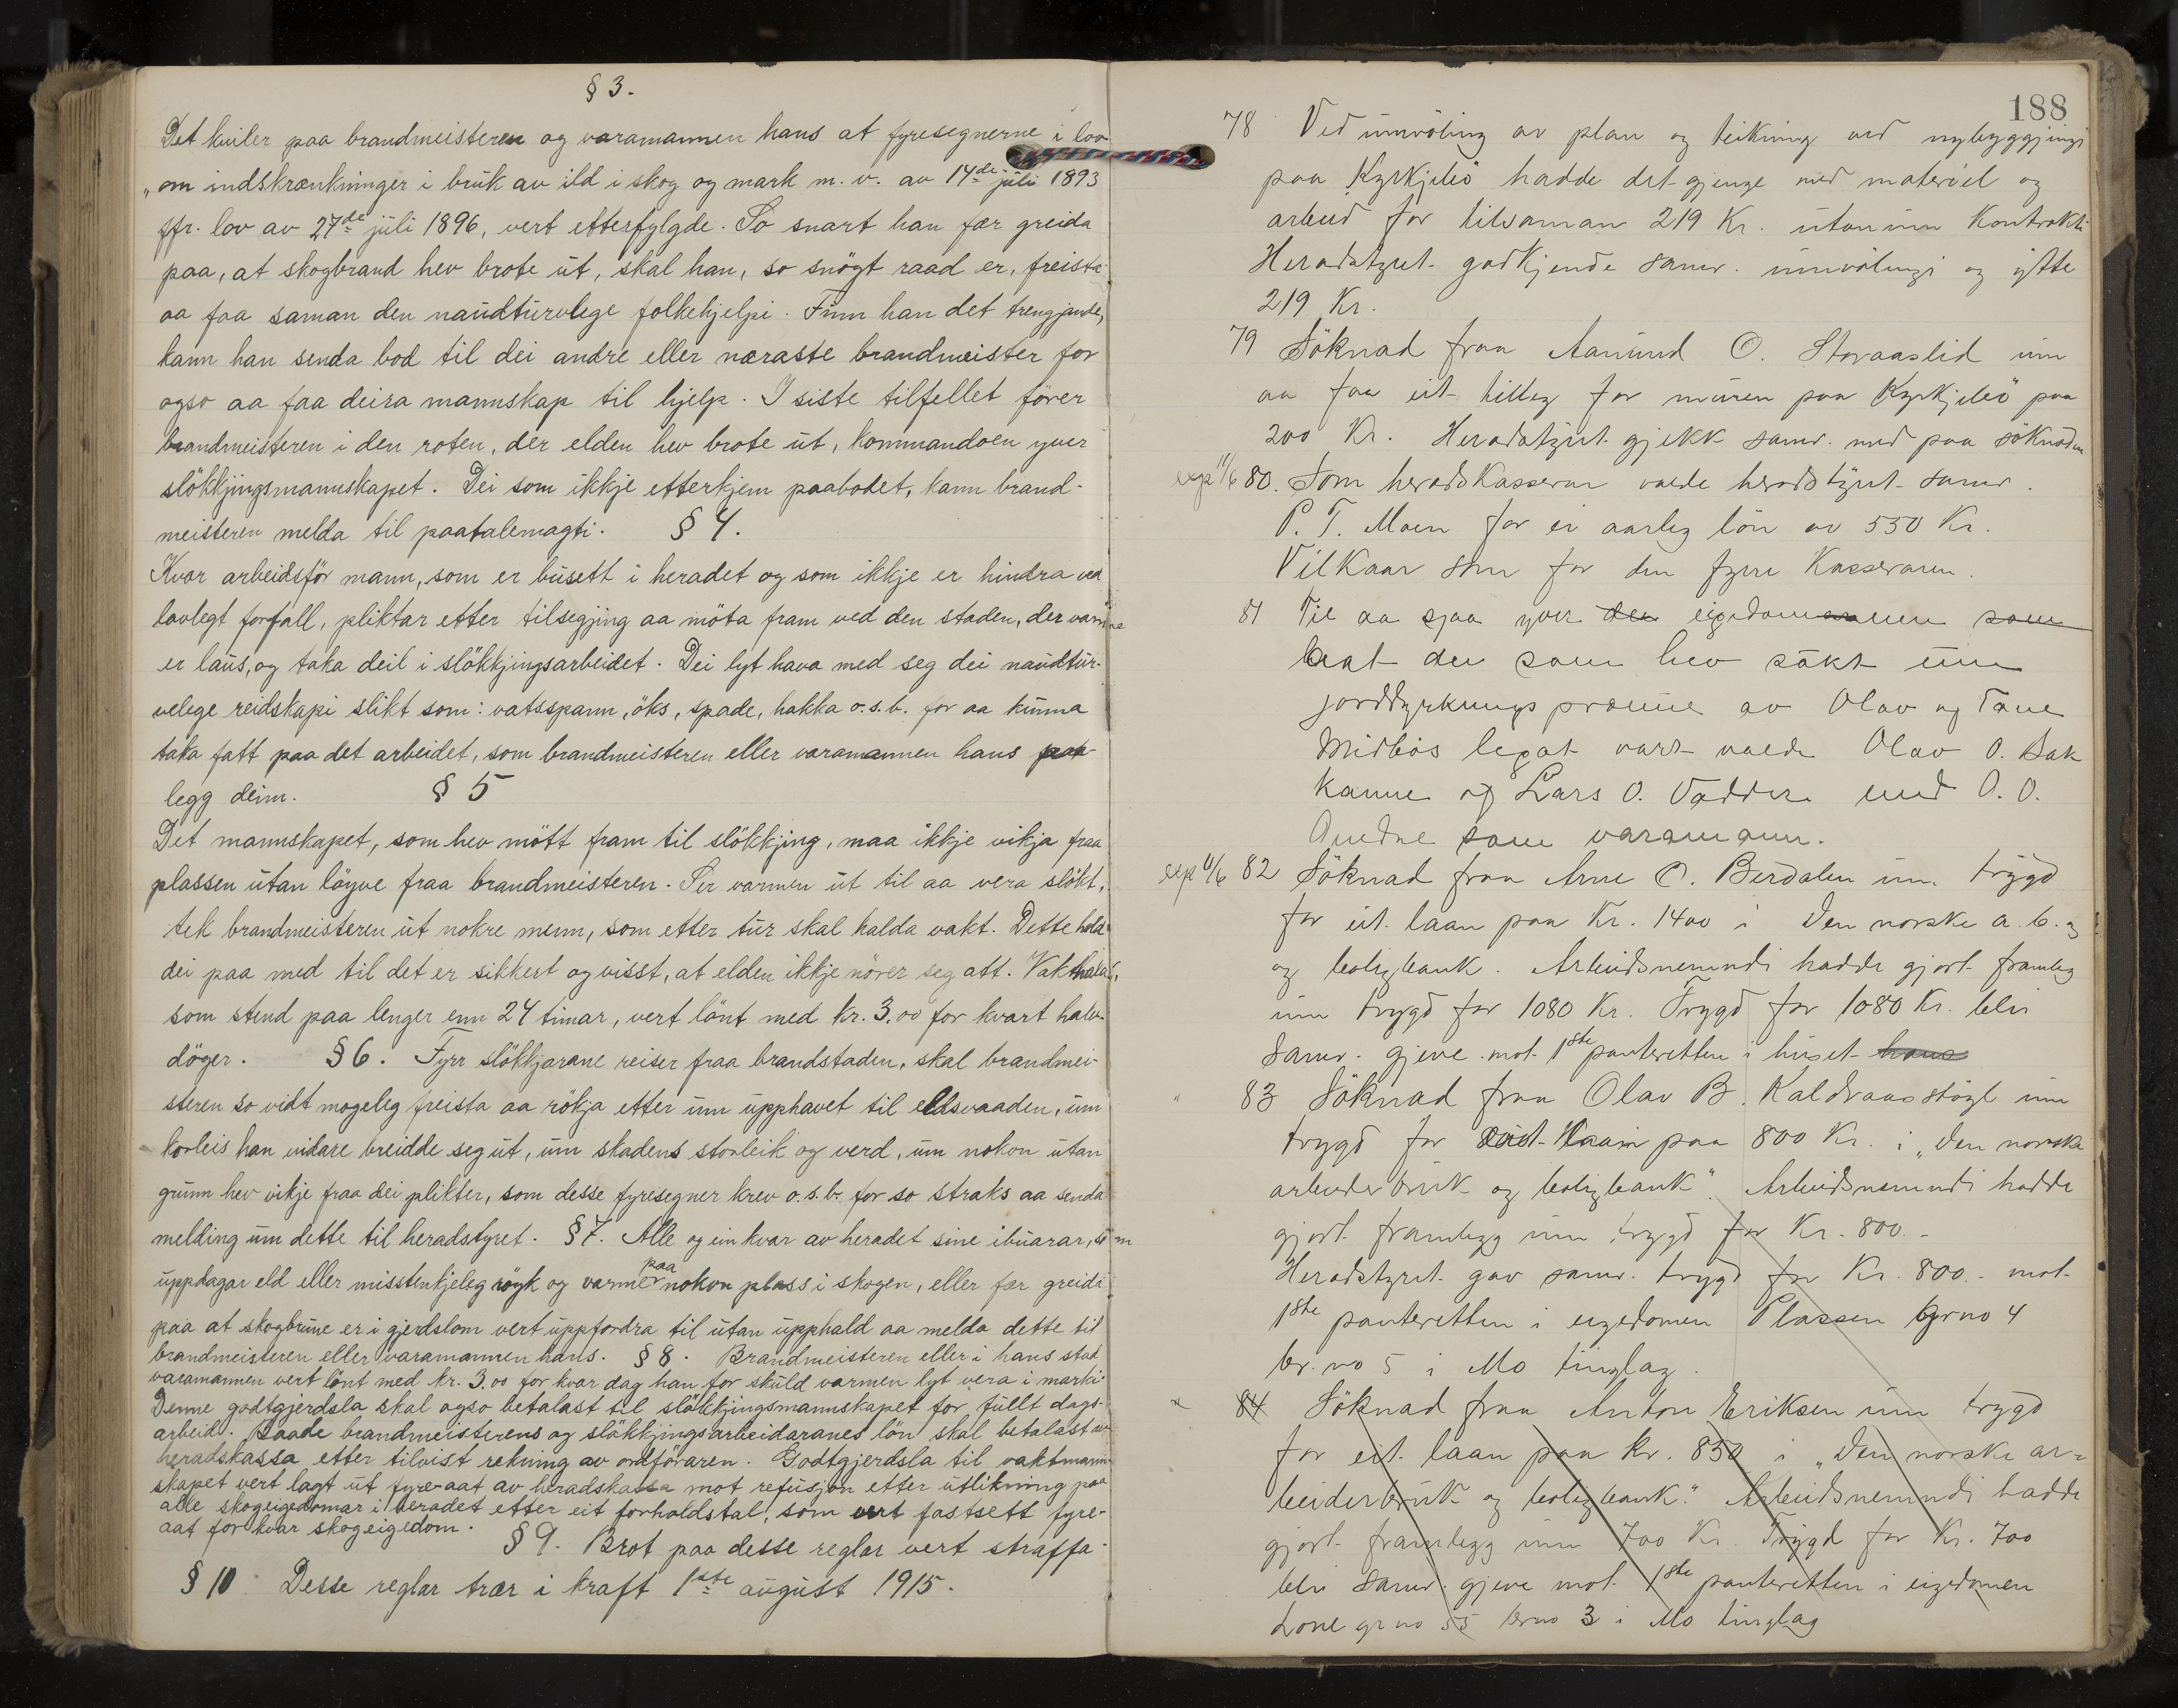 § 3.
Det kviler paa brandmeisteren og varamannen hans at fyresegnerne i lov
„om indskrænkninger i bruk av ild i skog og mark m. v. av 14de juli 1893
jfr. lov av 27de juli 1896, vert etterfylgde. So snart han fær greida
paa, at skogbrand hev brote ut, skal han, so snögt raad er, freista
aa faa saman den naudturvlege folkehjelpi. Finn han det trengjande,
kann han senda bod til dei andre eller næraste brandmeister for
ogso aa faa deira mannskap til hjelp. I siste tilfellet förer
brandmeisteren i den roten, der elden hev brote ut, kommandoen yver
slökkjingsmannskapet. Dei som ikkje etterkjem paabodet, kann brand-
meisteren melda til paatalemagti. § 4.
Kvar arbeidsför mann, som er busett i heradet og som ikkje er hindra ved
lovlegt forfall, pliktar etter tilsegjing aa möta fram ved den staden, der varmen
er laus, og taka deil i slökkjingsarbeidet. Dei lyt hava med seg dei naudtur-
velege reidskapi slikt som: vatsspann, öks, spade, hakka o.s.b. for aa kunna
taka fatt paa det arbeidet, som brandmeisteren eller varamannen hans paa-
legg deim. § 5
Det mannskapet, som hev mött fram til slökkjing, maa ikkje vikja fraa
plassen utan löyve fraa brandmeisteren. Ser varmen ut til aa vera slökt,
tek brandmeisteren ut nokre menn, som etter tur skal halda vakt. Dette held
dei paa med til det er sikkert og visst, at elden ikkje nörer seg att. Vakthald,
som stend paa lenger enn 24 timar, vert lönt med kr. 3.00 for kvart halv-
döger. § 6. Fyrr slökkjarane reiser fraa brandstaden, skal brandmei-
steren so vidt mogeleg freista aa rökja etter um upphavet til eldsvaaden, um
korleis han vidare breidde seg ut, um skadens storleik og verd, um nokon utan
grunn hev vikje fraa dei plikter, som desse fyresegner krev o.s.b. for so straks aa senda
melding um dette til heradstyret. § 7. Alle og ein kvar av heradet sine ibuarar, som
uppdagar eld eller misstenkjeleg röyk og varme paa nokon plass i skogen, eller fær greida
paa at skogbrune er i gjerdslom vert uppfordra til utan upphald aa melda dette til
brandmeisteren eller varamannen hans. § 8. Brandmeisteren eller i hans stad
varamannen vert lönt med kr. 3.00 for kvar dag han for skuld varmen lyt vera i marki.
Denne godtgjerdsla skal ogso betalast til slökkjingsmannskapet for fullt dags-
arbeid. Baade brandmeisterens og slökkjingsarbeidaranes lön skal betalast av
heradskassa etter tilvist rekning av ordföraren. Godtgjerdsla til vaktmann-
skapet vert lagt ut fyre-aat av heradskassa mot refusjon etter utlikning paa
alle skogeigedomar i heradet etter eit forholdstal, som vert fastsett fyre-
aat for kvar skogeigedom.
§ 9. Brot paa desse reglar vert straffa.
§ 10 Desse reglar trær i kraft 1ste august 1915.
188
78 Ved umvöling av plan og teikning ved nybyggjingi
paa Kyrkjebö hadde det gjenge med materiel og
arbeid for tilsaman 219 Kr. utanum Kontrakti
Heradstyret godkjende samr. umvölingi og ytte
219 Kr.
79 Söknad fraa Aanund O. Storaaslid um
aa faa eit tillegg for muren paa Kyrkjebö paa
200 Kr. Heradstyret gjekk samr. med paa söknaden
exp 11/6 80. Som heradskasserar valde heradstyret samr.
P. T. Moen for ei aarleg lön av 550 Kr.
Vilkaar som for den fyrre Kasseraren.
81 Til aa sjaa yver den eigedomannen som
hev sökt um
jorddyrkungs præmie av Olav og Tone
Midbös legat vart valde Olav O. Bak
kanne og Lars O. Vadder med O. O.
som varamann.
exp 11/6 82 Söknad fraa Arne O. Berdalen um trygd
for eit laan paa Kr. 1400 i Den norske a. b. og
og boligbank. Arbeidsnemndi hadde gjort framlegg
um trygd for 1080 Kr. Trygd for 1080 Kr. blir
samr. gjeve mot 1ste panteretten i huset hans
" 83 Söknad fraa Olav B. Kaldraasstögl um
trygd for eit laan paa 800 Kr. i „Den norske
arbeiderbruk og boligbank". Arbeidsnemndi hadde
gjort framlegg um trygd for Kr. 800.-
Heradstyret gav samr. trygd for Kr. 800.- mot
1ste panteretten i eigedomen Plassen Grno 4
br. no 5 i Mo tinglag.
84 Söknad fraa Anton Eriksen um trygd
for eit laan paa kr. 850 i „Den norske ar-
beiderbruk og boligbank." Arbeidsnemndi hadde
gjort framlegg um 700 Kr. Trygd for Kr. 700
blir samr. gjeve mot 1ste panteretten i eigedomen
Lone gr no 55 brno 3 i Mo tinglag